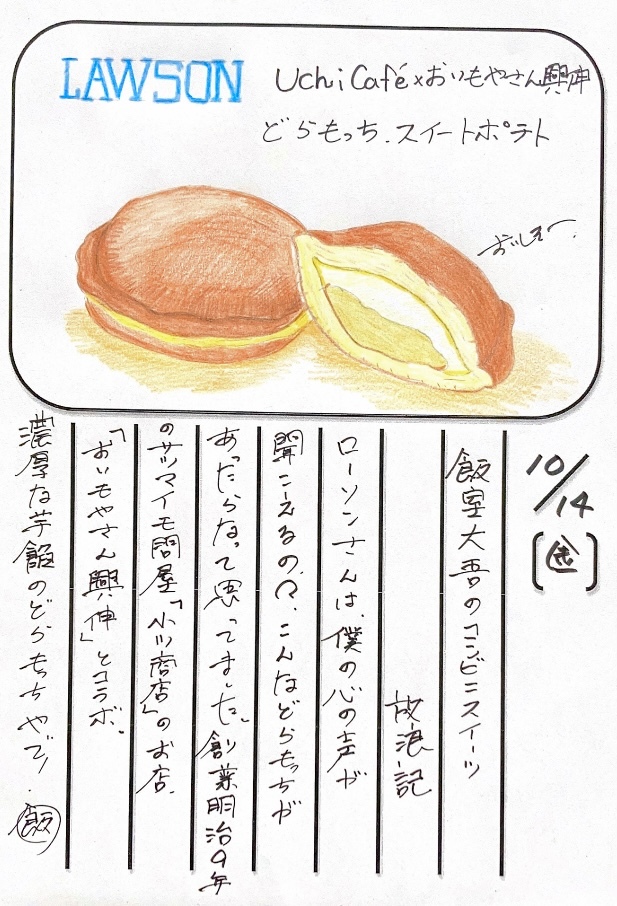 LAWSON
Uchi Café×おいもやさん興伸
どらもっち.スイートポテト
おいしそー.
10/14
(金)
飯室大吾のコンビニスイーツ
放浪記
ローソンさんは、僕の心の声が
聞こえるの?.こんなどらもっちが
あったらなって思ってました。創業明治9年
のサツマイモ問屋「小川商店」のお店.
「おいもやさん興伸」とコラボ.
濃厚な芋餡のどらもっちやで!.飯